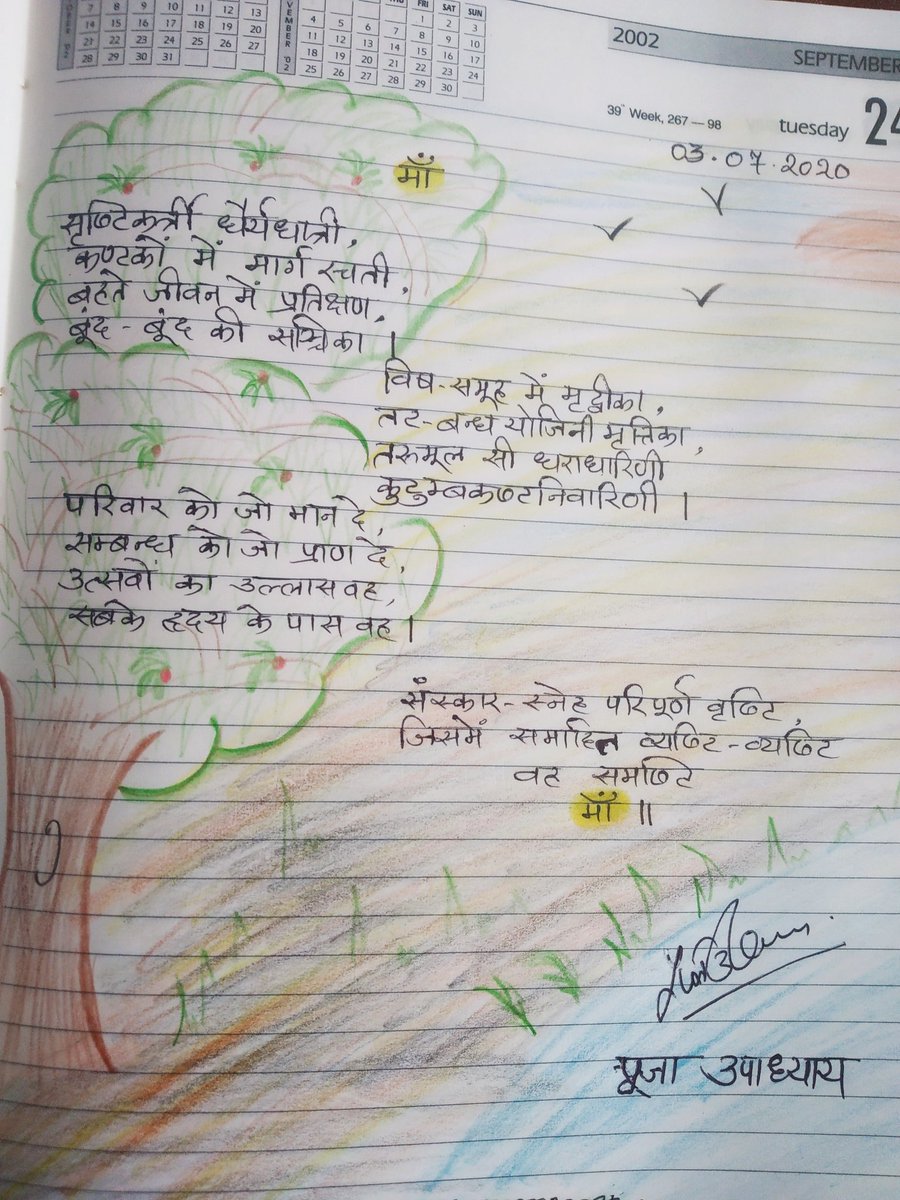 7 8 9 10 11 12 13
14 15 16 17 18 19 20
21 22 23 24 25 26 27
28 29 30 31
FRI SAT SUN
1 2 3
4 5 6 7 8 9 10
11 12 13 14 15 16 17
18 19 20 21 22 23 24
25 26 27 28 29 30
2002
SEPTEMBER
39th Week, 267 — 98
tuesday 24
03.07.2020
माँ
सृष्टिकर्त्री धैर्यधात्री,
कण्टकों में मार्ग रचती,
बहते जीवन में प्रतिक्षण,
बूंद-बूंद की सञ्चिका।
विष-समूह में मृद्वीका,
तट-बन्ध योजिनी मृत्तिका,
तरुमूल सी धराधारिणी
कुटुम्बकष्टनिवारिणी।
परिवार को जो मान दे,
सम्बन्ध को जो प्राण दे,
उत्सवों का उल्लास वह,
सबके हृदय के पास वह।
संस्कार-स्नेह परिपूर्ण वृष्टि,
जिसमें समाहित व्यष्टि-व्यष्टि
वह समष्टि
माँ॥
पूजा उपाध्याय